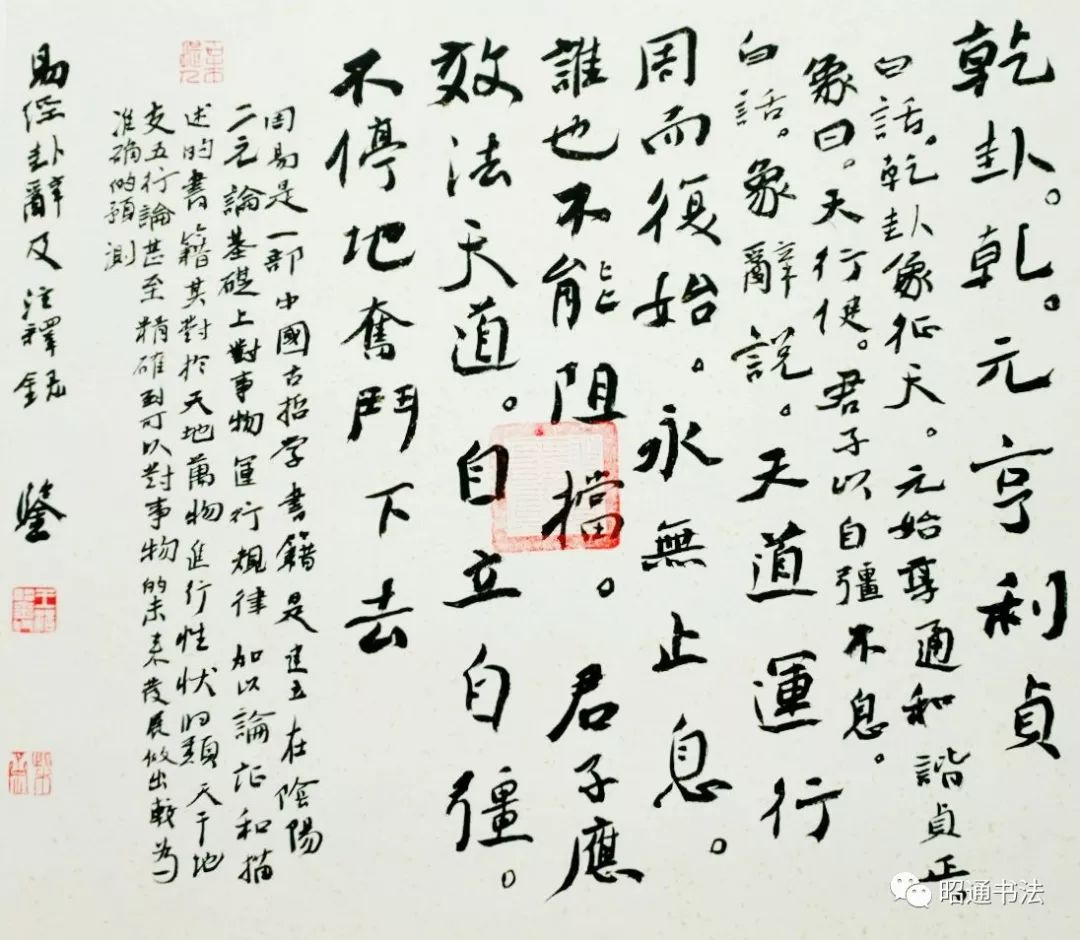 乾卦。乾。元亨利貞
白話。乾卦象征天。元始亨通和諧貞正
象曰。天行健。君子以自彊不息。
白話。象辭說。天道運行
周而復始。永無止息。
誰也不能阻擋。君子應
效法天道。自立自彊。
不停地奮鬥下去
周易是一部中國古哲学書籍是建立在陰陽
二元論基礎上對事物運行規律加以論证和描
述的書籍其對於天地萬物進行性状归類天干地
支五行論甚至精確到可以對事物的未来發展做出較為
准确的預測
易經卦辭及注釋錄 鑒
昭通书法